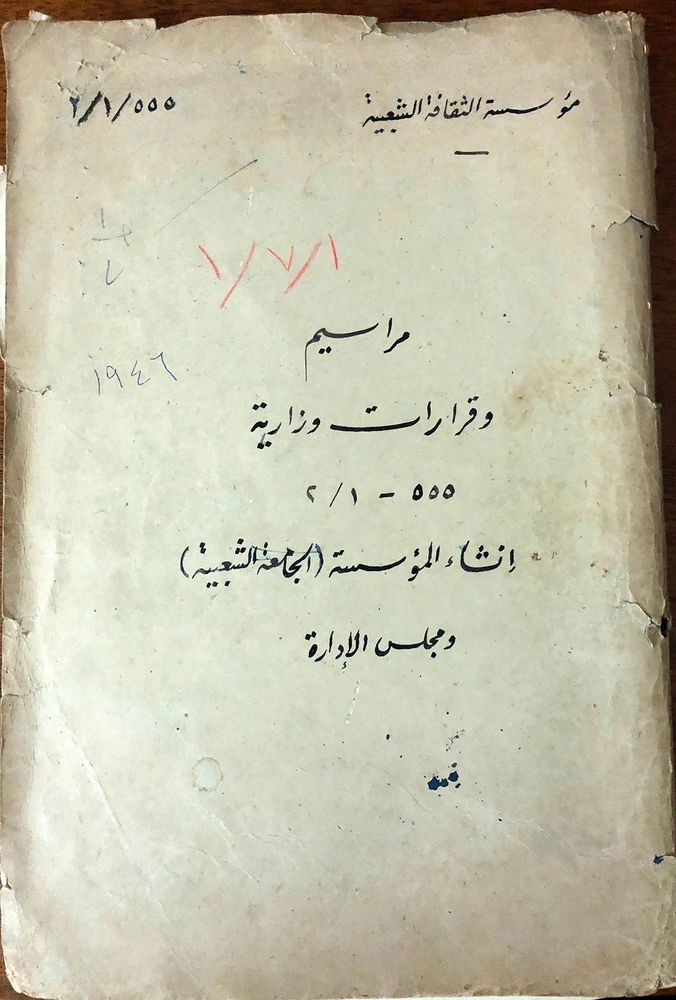 مؤسسة الثقافة الشعبية
٢/١/٥٥٥
١/٧/١
١٩٤٦
مراسيم
وقرارات وزارية
٥٥٥ - ٢/١
إنشاء المؤسسة (الجامعة الشعبية)
ومجلس الإدارة